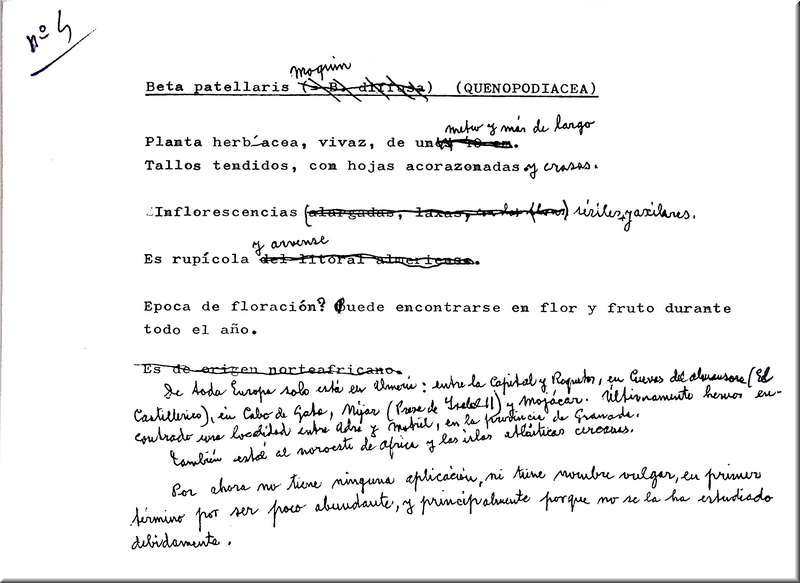 nº 4
moquin
Beta patellaris (= B. diffusa) (QUENOPODIACEA)
metro y más de largo
Planta herbácea, vivaz, de un 40 cm.
Tallos tendidos, con hojas acorazonadas y crasas.
Inflorescencias (alargadas, laxas, ) sésiles y axilares.
y arvense
Es rupícola del litoral almeriense.
Epoca de floración? Puede encontrarse en flor y fruto durante
todo el año.
Es de origen norteafricano.
De toda Europa solo está en Almería: entre la Capital y Roquetas, en Cuevas del almanzora (El
Castellerico), en Cabo de Gata, Níjar (Presa de Isabel II) y Mojácar. Últimamente hemos en-
contrado una localidad entre Adra y Motril, en la provincia de Granada.
También está al noroeste de África y las islas atlánticas cercanas.
Por ahora no tiene ninguna aplicación, ni tiene nombre vulgar, en primer
término por ser poco abundante, y principalmente porque no se la ha estudiado
debidamente.